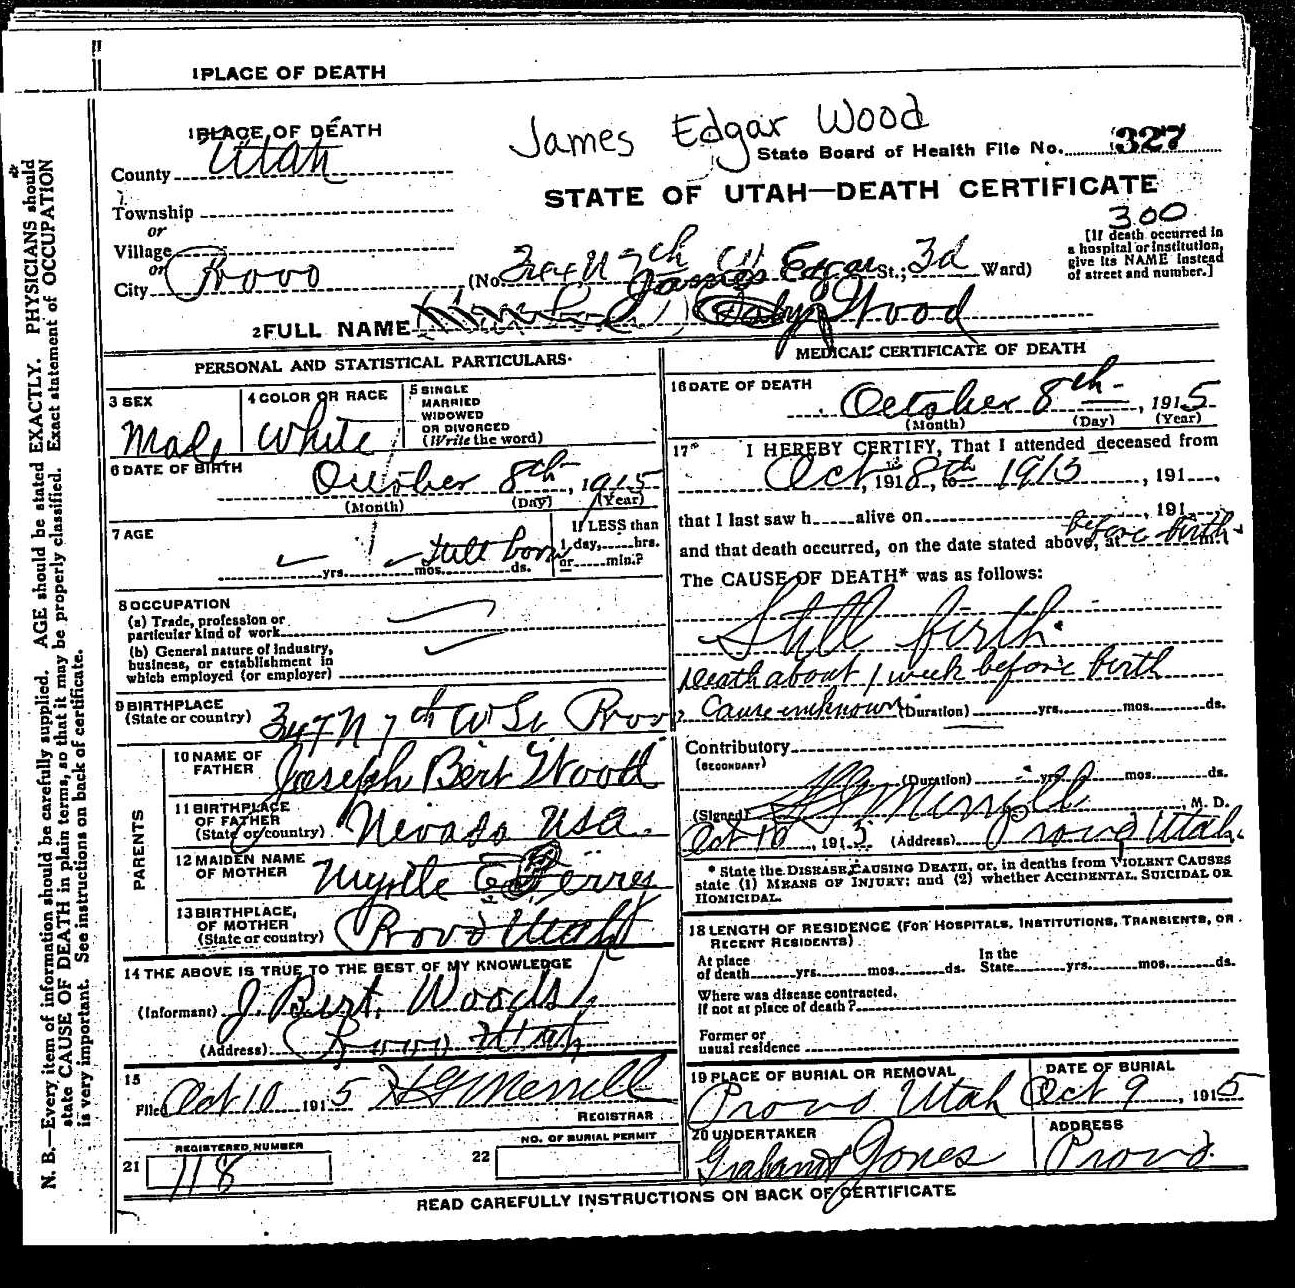 1 PLACE OF DEATH
1 PLACE OF DEATH
James Edgar Wood
State Board of Health File No. 327
County Utah
STATE OF UTAH—DEATH CERTIFICATE
Township
300
or
Village
or
City Provo
(No. 7th St.; 3d Ward)
[If death occurred in a hospital or institution, give its NAME instead of street and number.]
James Edgar
2 FULL NAME Baby Wood
PERSONAL AND STATISTICAL PARTICULARS
3 SEX
Male
4 COLOR OR RACE
White
5 SINGLE
MARRIED
WIDOWED
OR DIVORCED
(Write the word)
6 DATE OF BIRTH
October 8th, 1915
(Month) (Day) (Year)
7 AGE
If LESS than
Still born 1 day, hrs.
yrs. mos. ds. or min.?
8 OCCUPATION
(a) Trade, profession or
particular kind of work
(b) General nature of industry,
business, or establishment in
which employed (or employer)
9 BIRTHPLACE
(State or country) N 7th W St Provo
PARENTS
10 NAME OF
FATHER Joseph Bert Wood
11 BIRTHPLACE
OF FATHER
(State or country) Nevada USA.
12 MAIDEN NAME
OF MOTHER Myrtle E Ferre
13 BIRTHPLACE,
OF MOTHER
(State or country) Provo Utah
14 THE ABOVE IS TRUE TO THE BEST OF MY KNOWLEDGE
(Informant) J. Bert. Woods
(Address) Provo Utah
15
Filed Oct 10 1915 Merrill
REGISTRAR
REGISTERED NUMBER
21 118
NO. OF BURIAL PERMIT
22
MEDICAL CERTIFICATE OF DEATH
16 DATE OF DEATH
October 8th, 1915
(Month) (Day) (Year)
17 I HEREBY CERTIFY, That I attended deceased from
Oct, 191 8th, to 1915, 191
that I last saw h alive on , 191
before birth
and that death occurred, on the date stated above, at m
The CAUSE OF DEATH* was as follows:
Still birth.
Death about 1 week before birth
Cause unknown (Duration) yrs. mos. ds.
Contributory
(SECONDARY)
(Duration) yrs. mos. ds.
(Signed) Merrill, M. D.
Oct 10, 1915 (Address) Provo Utah.
* State the DISEASE CAUSING DEATH, or, in deaths from VIOLENT CAUSES
state (1) MEANS OF INJURY; and (2) whether ACCIDENTAL, SUICIDAL OR
HOMICIDAL.
18 LENGTH OF RESIDENCE (FOR HOSPITALS, INSTITUTIONS, TRANSIENTS, OR
RECENT RESIDENTS)
At place In the
of death yrs. mos. ds. State yrs. mos. ds.
Where was disease contracted,
if not at place of death?
Former or
usual residence
19 PLACE OF BURIAL OR REMOVAL
Provo Utah
DATE OF BURIAL
Oct 9, 1915
20 UNDERTAKER
Jones
ADDRESS
Provo.
READ CAREFULLY INSTRUCTIONS ON BACK OF CERTIFICATE
N. B.—Every item of information should be carefully supplied. AGE should be stated EXACTLY. PHYSICIANS should
state CAUSE OF DEATH in plain terms, so that it may be properly classified. Exact statement of OCCUPATION
is very important. See instructions on back of certificate.